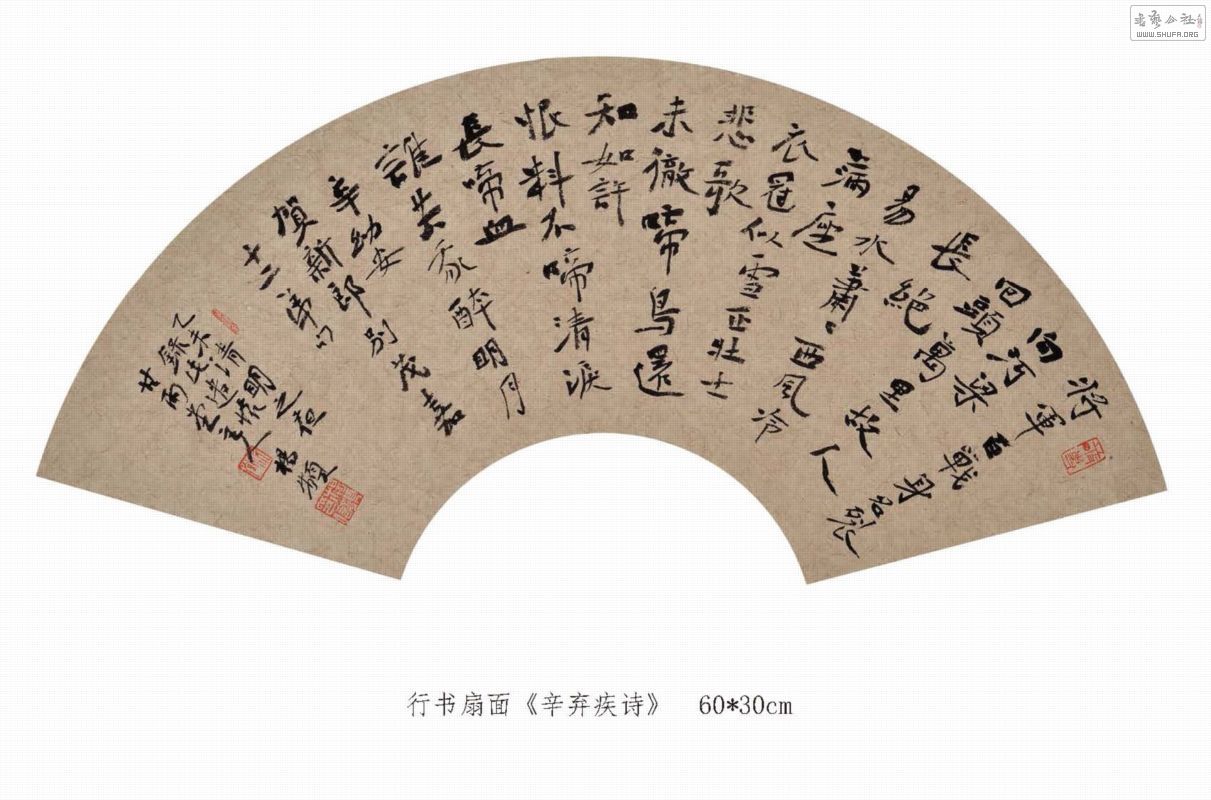 書藝公社
WWW.SHUFA.ORG
将軍百戰身名裂
向河梁
回頭萬里故人
長絕
易水蕭〻西風冷
滿座
衣冠似雪正壯士
悲歌
未徹啼鳥還
知如許
恨料不啼清淚
長啼血
誰共我醉明月
辛幼安
賀新郎別茂嘉
十二弟
乙未清明之夜楊
錄此遣懷
甘雨堂主人
行书扇面《辛弃疾诗》 60*30cm